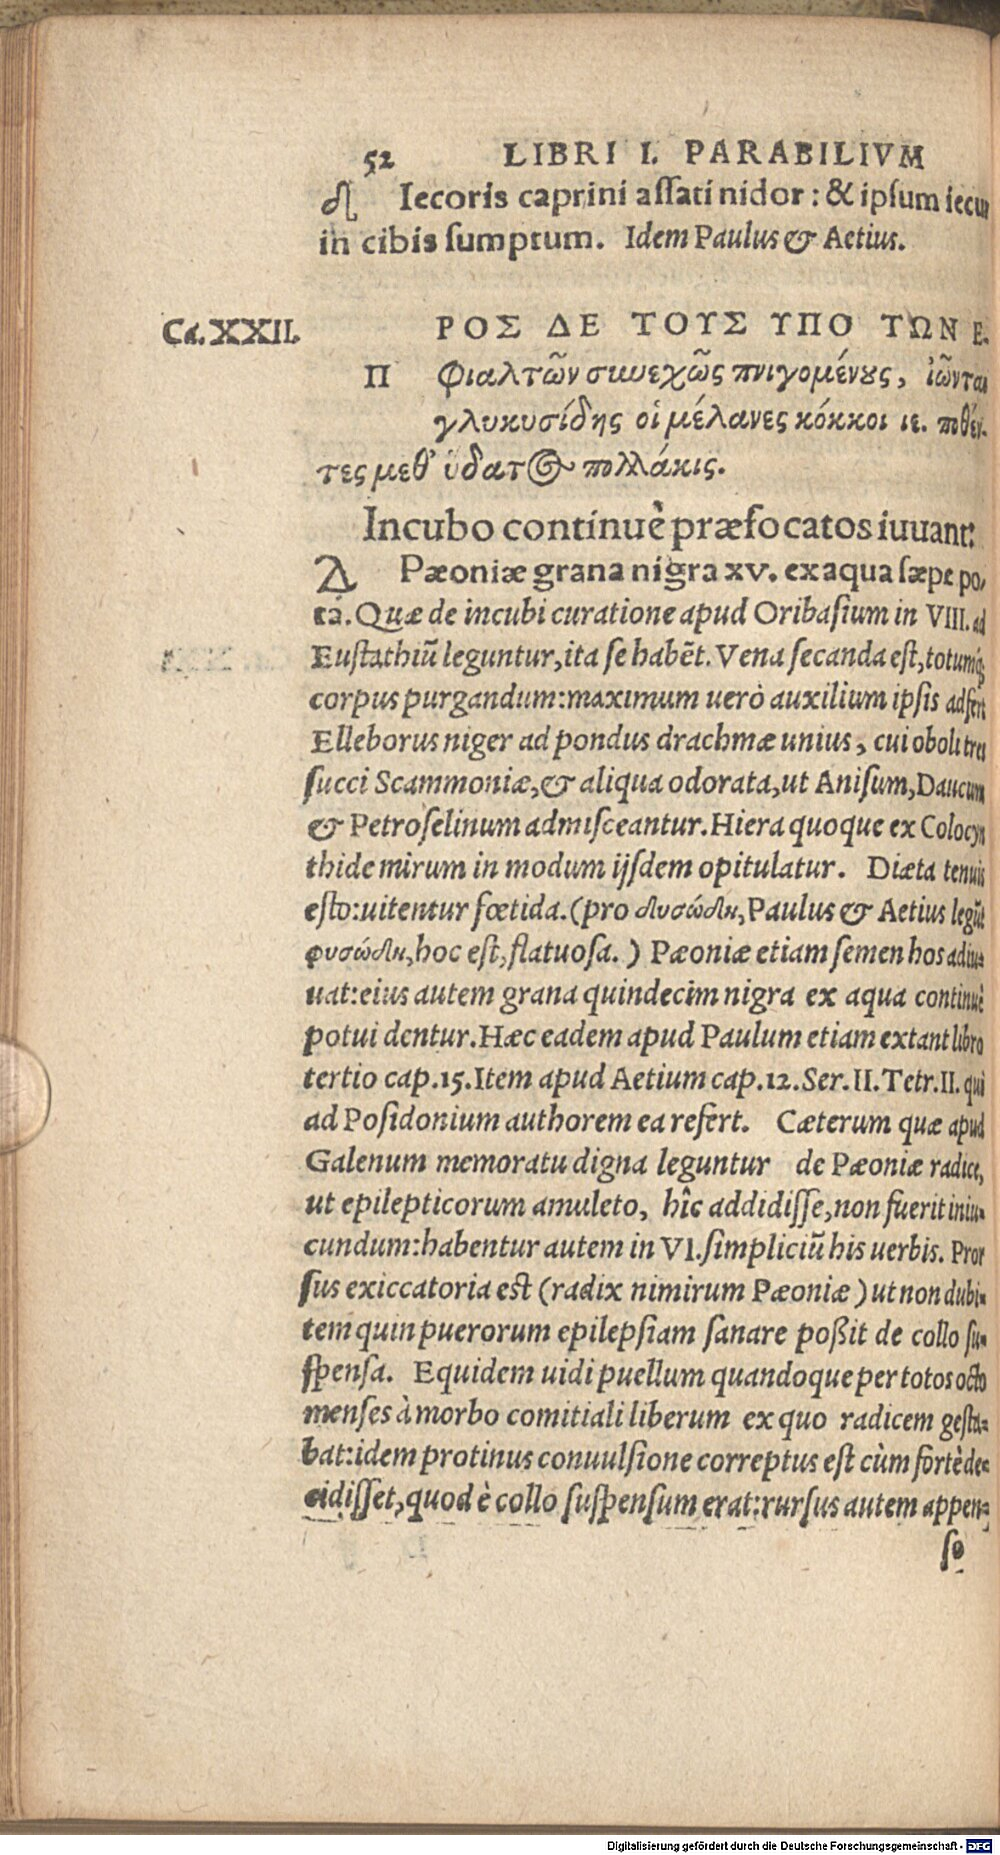 52 LIBRI I. PARABILIVM
δ Iecoris caprini assati nidor: & ipsum iecur
in cibis sumptum. Idem Paulus & Aetius.
Ca.XXII. ΡΟΣ ΔΕ ΤΟΥΣ ΥΠΟ ΤΩΝ Ε-
Π φιαλτῶν συνεχῶς πνιγομένους, ἰῶνται
γλυκυσίδης οἱ μέλανες κόκκοι ιε. ποθέν-
τες μεθ' ὑδατος πολλάκις.
Incubo continuè præfocatos iuuant:
Pæoniæ grana nigra xv. ex aqua sæpe po-
ta. Quæ de incubi curatione apud Oribasium in VIII. ad
Eustathiū leguntur, ita se habēt. Vena secanda est, totumq;
corpus purgandum: maximum uerò auxilium ipsis adfert
Elleborus niger ad pondus drachmæ unius, cui oboli tres
succi Scammoniæ, & aliqua odorata, ut Anisum, Daucum
& Petroselinum admisceantur. Hiera quoque ex Colocyn
thide mirum in modum ijsdem opitulatur. Diæta tenuis
esto: uitentur fœtida. (pro δυσώδη, Paulus & Aetius legūt
φυσώδη, hoc est, flatuosa.) Pæoniæ etiam semen hos adiu-
uat: eius autem grana quindecim nigra ex aqua continuè
potui dentur. Hæc eadem apud Paulum etiam extant libro
tertio cap.15. Item apud Aetium cap.12. Ser.II. Tetr.II. qui
ad Posidonium authorem ea refert. Cæterum quæ apud
Galenum memoratu digna leguntur de Pæoniæ radice,
ut epilepticorum amuleto, hîc addidisse, non fuerit iniu-
cundum: habentur autem in VI. simpliciū his uerbis. Pror
sus exiccatoria est (radix nimirum Pæoniæ) ut non dubi-
tem quin puerorum epilepsiam sanare poßit de collo su-
spensa. Equidem uidi puellum quandoque per totos octo
menses à morbo comitiali liberum ex quo radicem gesta-
bat: idem protinus conuulsione correptus est cùm fortè de-
cidisset, quod è collo suspensum erat: rursus autem appen-
so
Digitalisierung gefördert durch die Deutsche Forschungsgemeinschaft - DFG